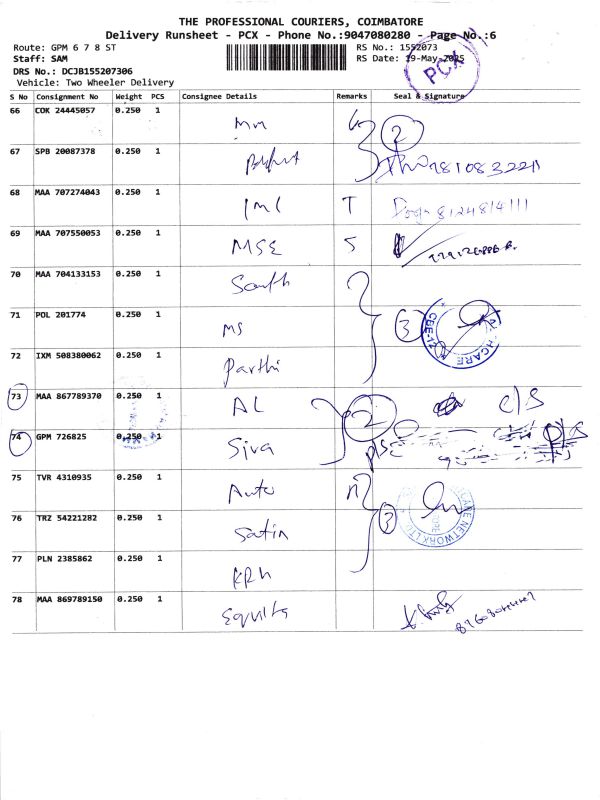 THE PROFESSIONAL COURIERS, COIMBATORE
Delivery Runsheet - PCX - Phone No.:9047080280 - Page No.:6
Route: GPM 6 7 8 ST RS No.: 1552073
Staff: SAM RS Date: 19-May-2025
PCX
DRS No.: DCJB155207306
Vehicle: Two Wheeler Delivery
S No Consignment No Weight PCS Consignee Details Remarks Seal & Signature
66 COK 24445057 0.250 1 2
67 SPB 20087378 0.250 1
68 MAA 707274043 0.250 1 T 8124814111
69 MAA 707550053 0.250 1 MSE S
70 MAA 704133153 0.250 1 South
71 POL 201774 0.250 1 MS 3
72 IXM 508380062 0.250 1 Parthi
73 MAA 867789370 0.250 1 AL 2 C/S
74 GPM 726825 0.250 1 Siva
75 TVR 4310935 0.250 1 Auto
76 TRZ 54221282 0.250 1 Satin 3
77 PLN 2385862 0.250 1 KRN
78 MAA 869789150 0.250 1 Equitas